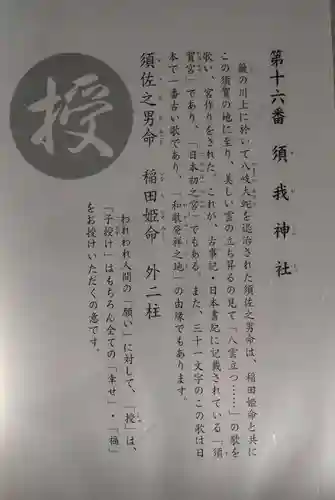 第十六番 須我神社
簸の川上に於いて八岐大蛇を退治された須佐之男命は、稲田姫命と共に
この須賀の地に至り、美しい雲の立ち昇るの見て「八雲立つ……」の歌を
歌い、宮作りをされた。これが、古事記・日本書紀に記載されている「須
賀宮」であり、「日本初之宮」でもある。また、三十一文字のこの歌は日
本で一番古い歌であり、「和歌発祥之地」の由縁でもあります。
須佐之男命 稲田姫命 外二柱
われわれ人間の「願い」に対して、「授」は、
「子授け」はもちろん全ての「幸せ」・「福」
をお授けいただくの意です。
授